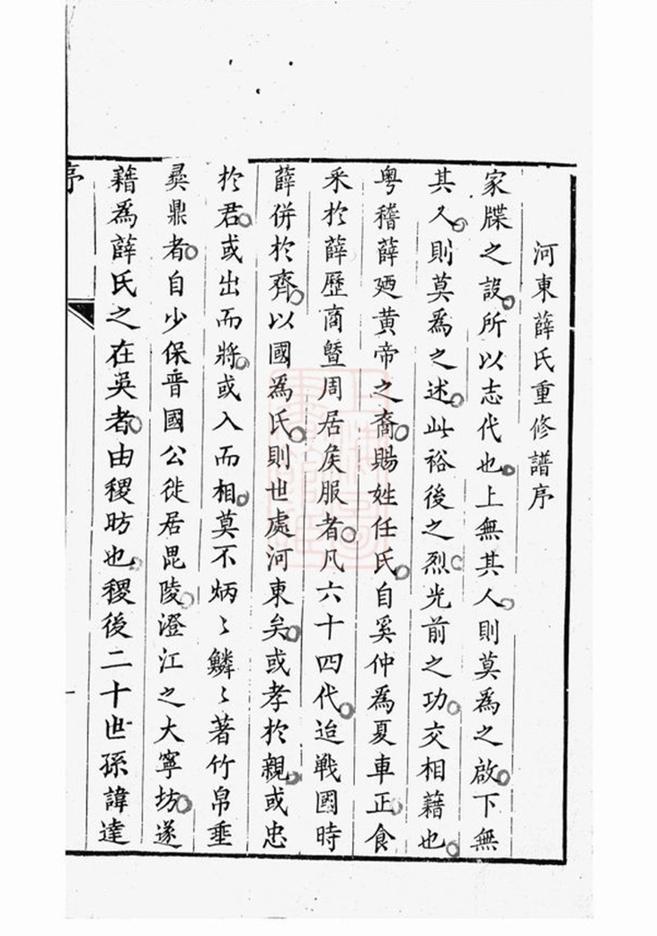 河東薛氏重修譜序
家牒之設所以志代也上無其人則莫為之啟下無
其人則莫為之述此裕後之烈光前之功交相藉也
粤稽薛廼黄帝之裔賜姓任氏自奚仲為夏車正食
采於薛歷商暨周居矦服者凡六十四代迨戰國時
薛併於齊以國為氏則世處河東矣或孝於親或忠
於君或出而將或入而相莫不炳〻鱗〻著竹帛垂
彝鼎者自少保晋國公徙居毘陵澄江之大寧坊遂
籍為薛氏之在吳者由稷昉也稷後二十世孫諱達
序
一